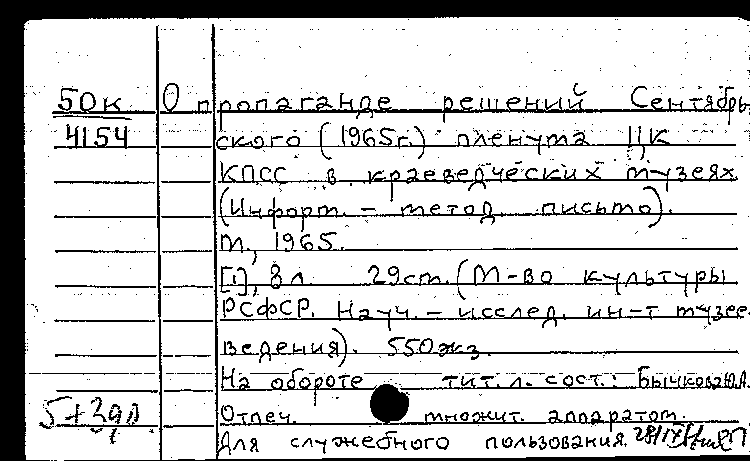 50к О пропаганде решений Сентябрь
4154 ского (1965г.) пленума ЦК
КПСС в краеведческих музеях
(Информ. – метод. письмо).
М., 1965.
[1], 8 л. 29см. (М-во культуры
РСФСР. Науч. – исслед. ин-т музее
ведения). 550экз.
На обороте тит. л. сост.: Бычкова Ю.А.
Отпеч. множит. аппаратом.
Для служебного пользования.